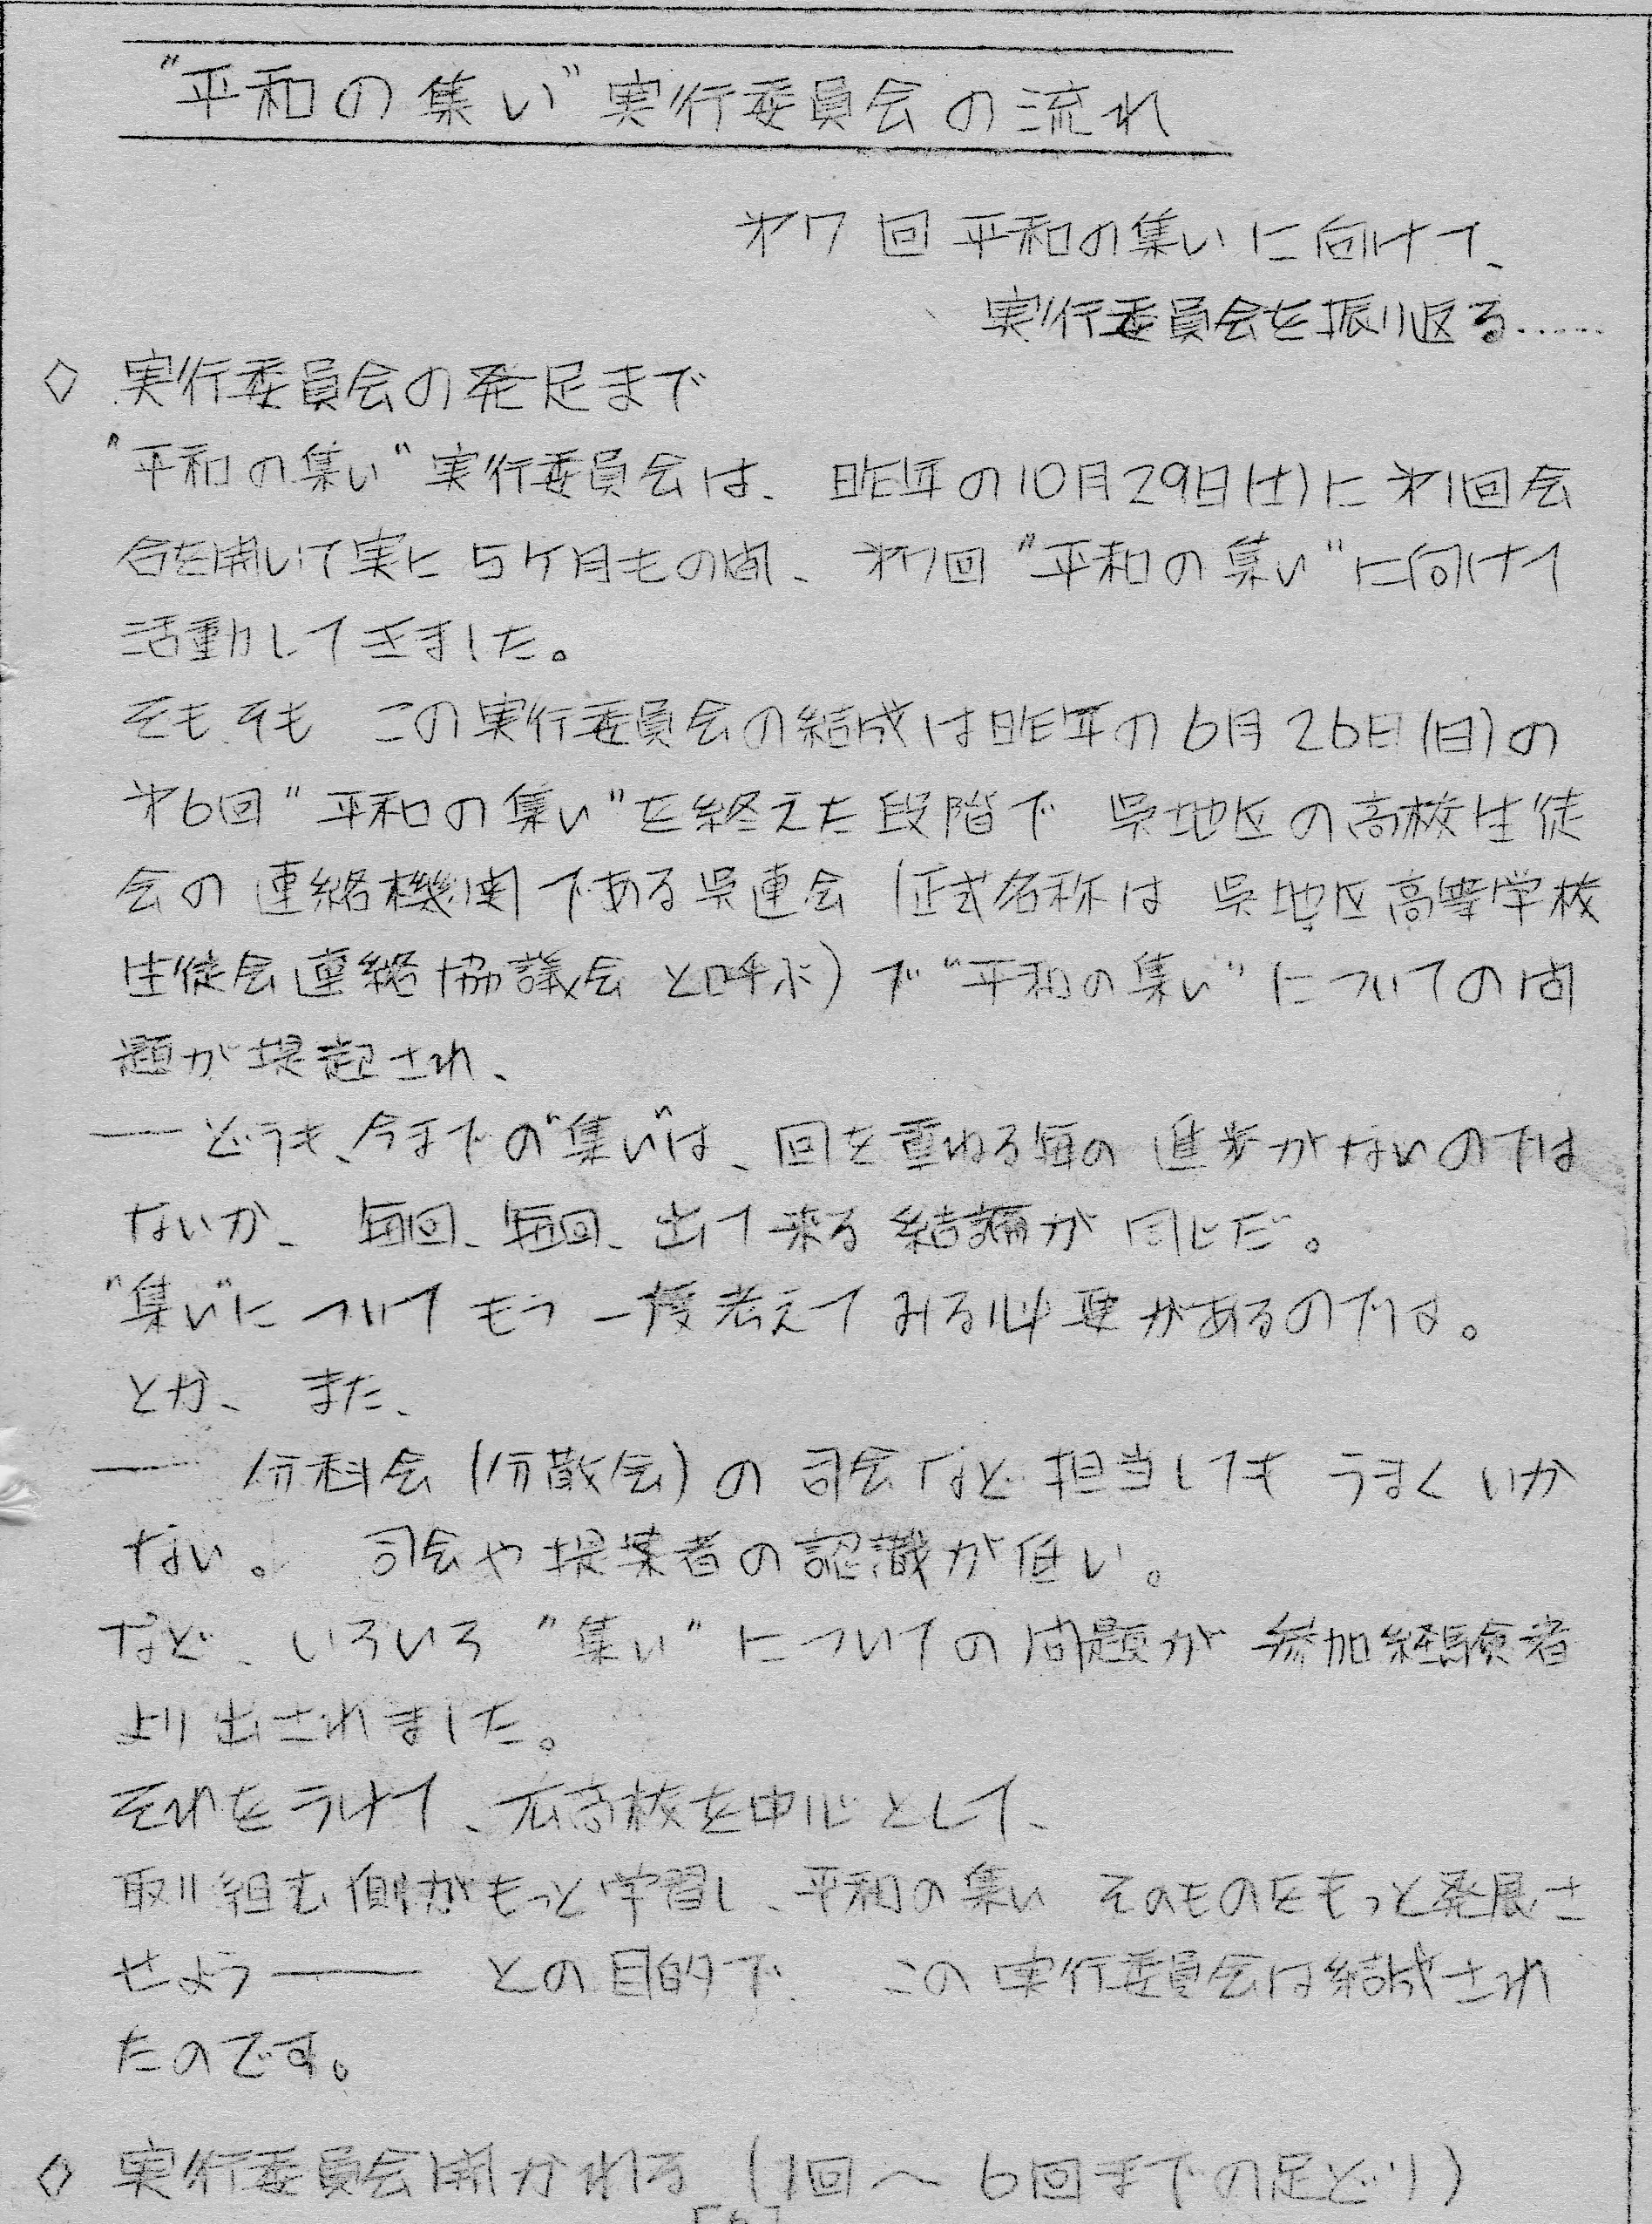 "平和の集い"実行委員会の流れ
才7回平和の集いに向けて、
実行委員会を振り返る……
◇ 実行委員会の発足まで
"平和の集い"実行委員会は、昨年の10月29日(土)に才1回会
合を開いて実に5ヶ月もの間、才7回"平和の集い"に向けて
活動してきました。
そもそも この実行委員会の結成は昨年の6月26日(日)の
才6回"平和の集い"を終えた段階で 呉地区の高校生徒
会の連絡機関である呉連会(正式名称は 呉地区高等学校
生徒会連絡協議会と呼ぶ)で"平和の集い"についての問
題が提起され、
――どうも、今までの"集い"は、回を重ねる毎の進歩がないのでは
ないか、毎回、毎回、出て来る結論が同じだ。
"集い"についてもう一度考えてみる必要があるのでは。
とか、また、
―― 分科会(分散会)の司会など担当してもうまくいか
ない。司会や提案者の認識が低い。
など、いろいろ"集い"についての問題が参加経験者
より出されました。
それをうけて、広高校を中心として、
取り組む側がもっと学習し、平和の集いそのものをもっと発展さ
せよう―― との目的で、この実行委員会は結成され
たのです。
◇ 実行委員会開かれる (1回〜6回までの足どり)